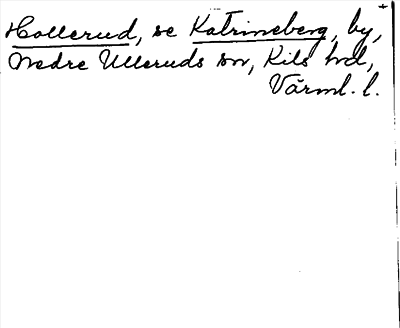 Hollerud, se Katrineberg, by,
Nedre Ulleruds sn, Kils hd,
Värml. l.